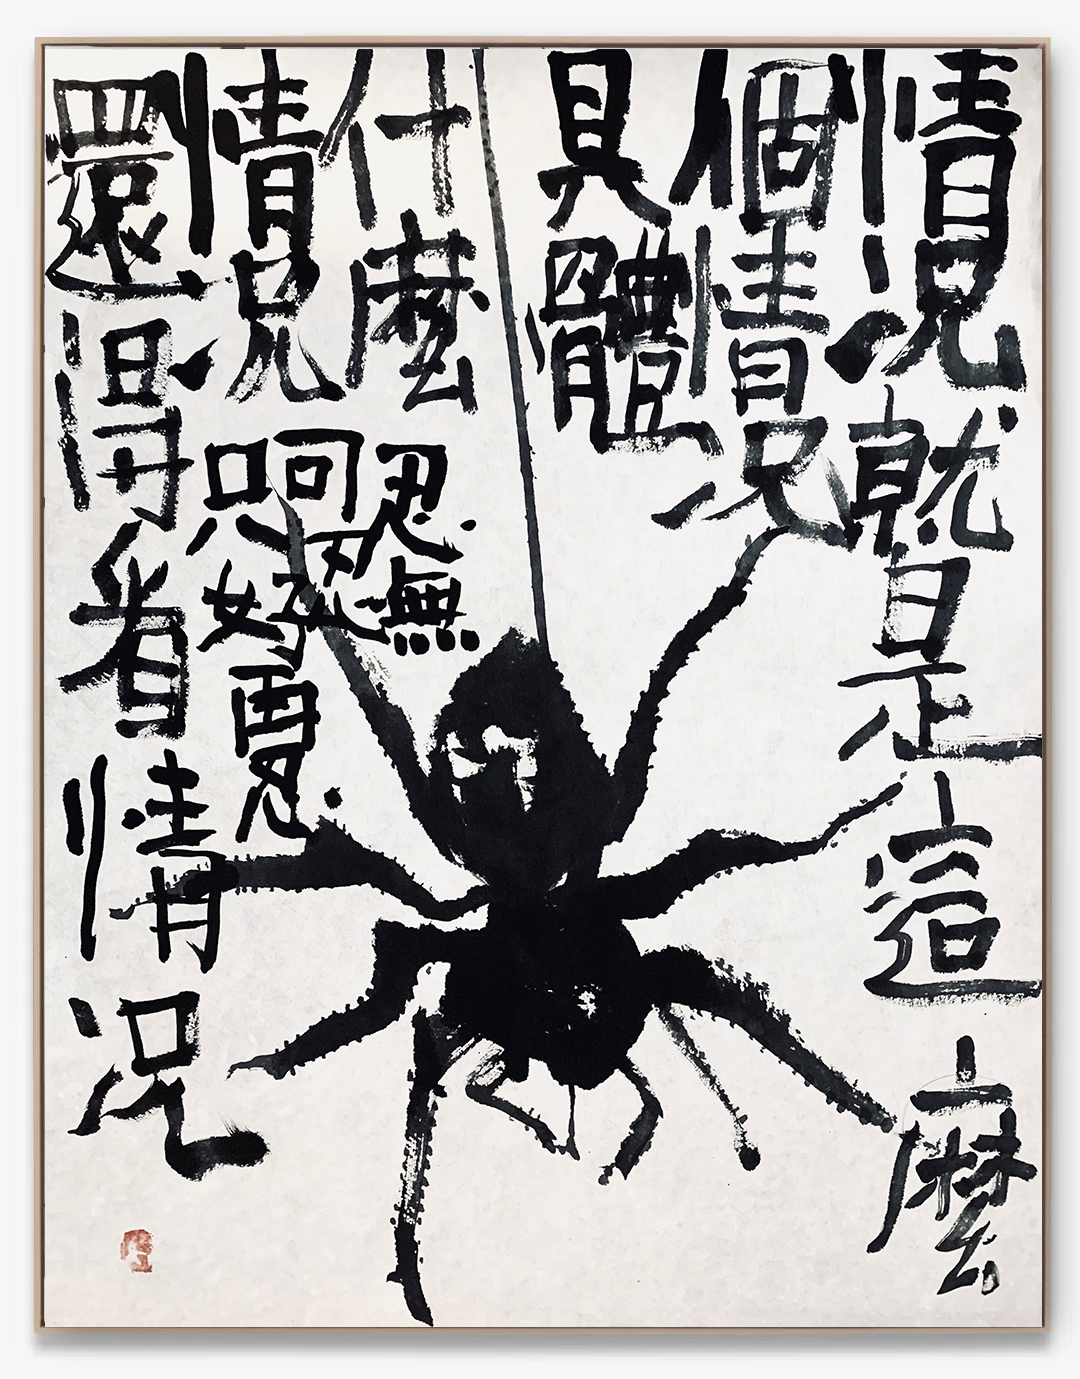 情況就是這麼
個情況
具體
什麼
情況
還得看情況
忍無
可忍
只好再忍